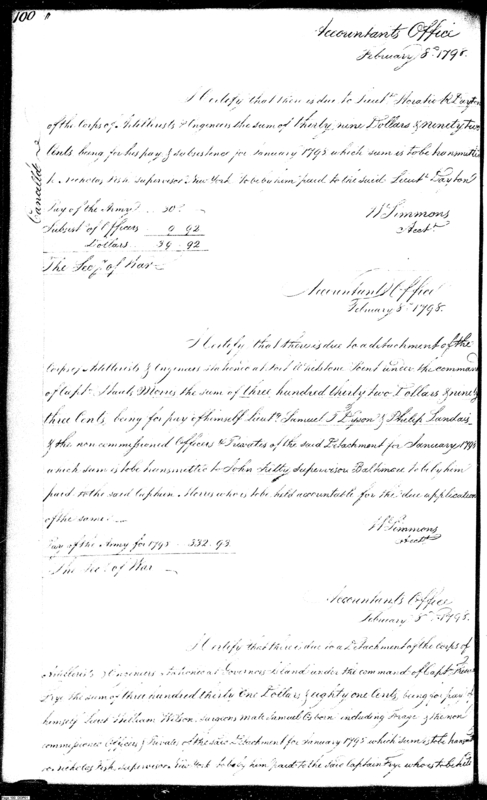 100
Accountants Office
February 8th 1798.
I Certify that there is due to Lieut. Horatio R Dayton
of the Corps of Artillerists & Engineers the sum of thirty nine Dollars & ninety two
Cents being for his pay & subsistence for January 1798 which sum is to be transmitted
to Nicholas Fish Supervisor New York to be by him paid to the said Lieut. Dayton
Cancelled
Pay of the Army 30
Subsist. of Officers 9 92
Dollars 39 92
Wm Simmons
Acct.
The Secy. of War
Accountants Office
February 8th 1798.
I Certify that there is due to a detachment of the
Corps of Artillerists & Engineers stationed at Fort Whetstone Point under the command
of Capt. Staats Morris the sum of three hundred thirty two Dollars & ninety
three Cents, being for pay of himself Lieuts. Samuel T Dyson & Philip Landais
& the non commissioned Officers & Privates of the said Detachment for January 1798
which sum is to be transmitted to John Kilty Supervisor Baltimore to be by him
paid to the said Captain Morris who is to be held accountable for the due application
of the same
Wm Simmons
Acct.
Pay of the Army for 1798 332.93
The Sec. of War
Accountants Office
February 8th 1798.
I Certify that there is due to a Detachment of the corps of
Artillerists & Engineers stationed at Governors Island under the command of Capt.
Frye the sum of three hundred thirty One Dollars & eighty one Cents, being for pay of
himself Lieut William Wilson, Surgeons mate Samuel Osborn including forage & the non
commissioned Officers & Privates of the said Detachment for January 1798 which sum is to be
to Nicholas Fish Supervisor New York to be by him paid to the said Captain Frye who is to be held